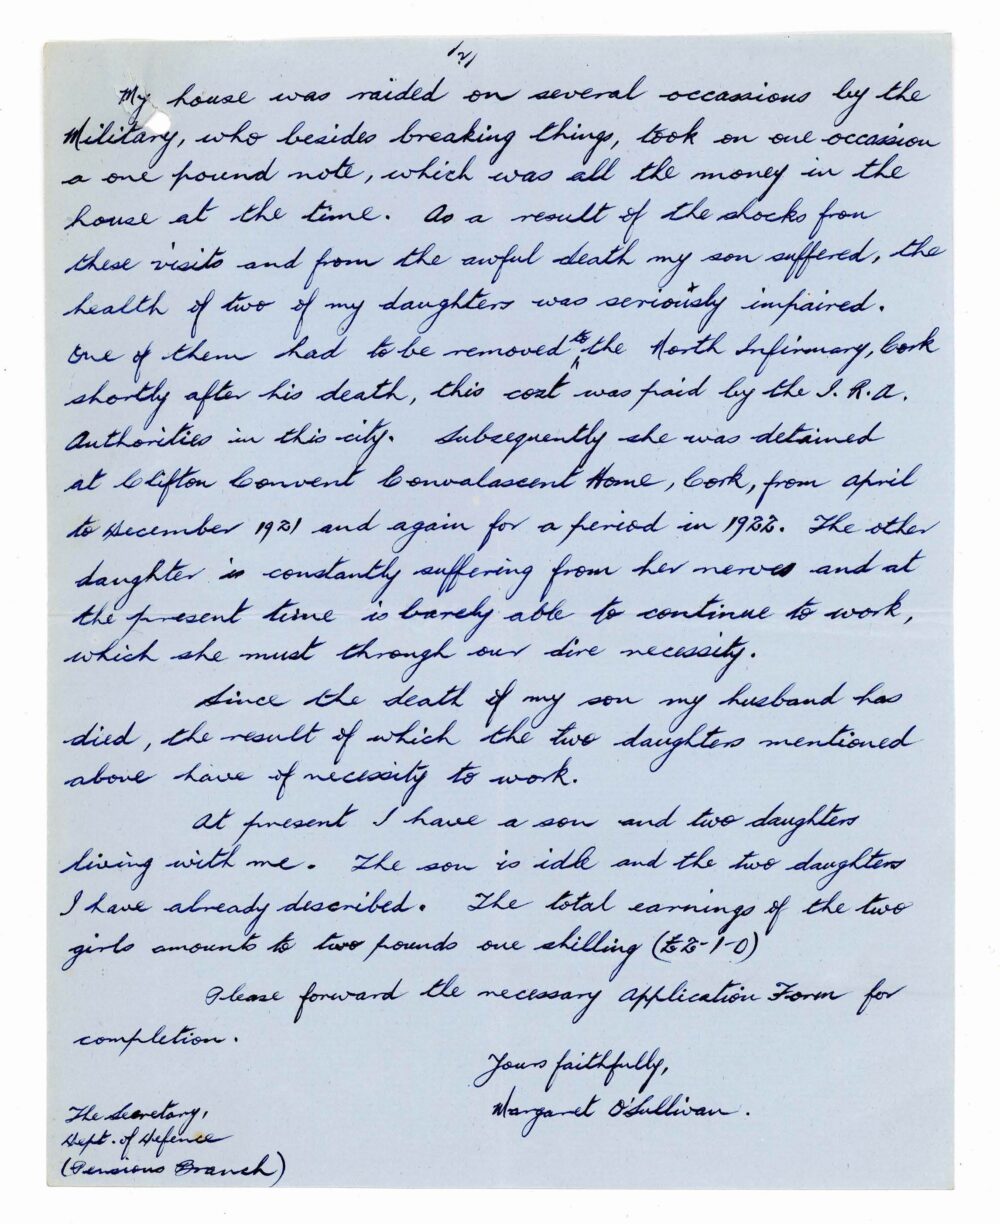 /2/
My house was raided on several occassions by the
Military, who besides breaking things, took on one occassion
a one pound note, which was all the money in the
house at the time. As a result of the shocks from
these visits and from the awful death my son suffered, the
health of two of my daughters was seriously impaired.
One of them had to be removed to the North Infirmary, Cork
shortly after his death, this cost was paid by the I.R.A.
Authorities in this city. Subsequently she was detained
at Clifton Convent Convalascent Home, Cork, from April
to December 1921 and again for a period in 1922. The other
daughter is constantly suffering from her nerves and at
the present time is barely able to continue to work,
which she must through our dire necessity.
Since the death of my son my husband has
died, the result of which the two daughters mentioned
above have of necessity to work.
At present I have a son and two daughters
living with me. The son is idle and the two daughters
I have already described. The total earnings of the two
girls amounts to two pounds one shilling (£2-1-0)
Please forward the necessary Application Form for
completion.
Yours faithfully,
Margaret O'Sullivan.
The Secretary,
Dept. of Defence
(Pensions Branch)